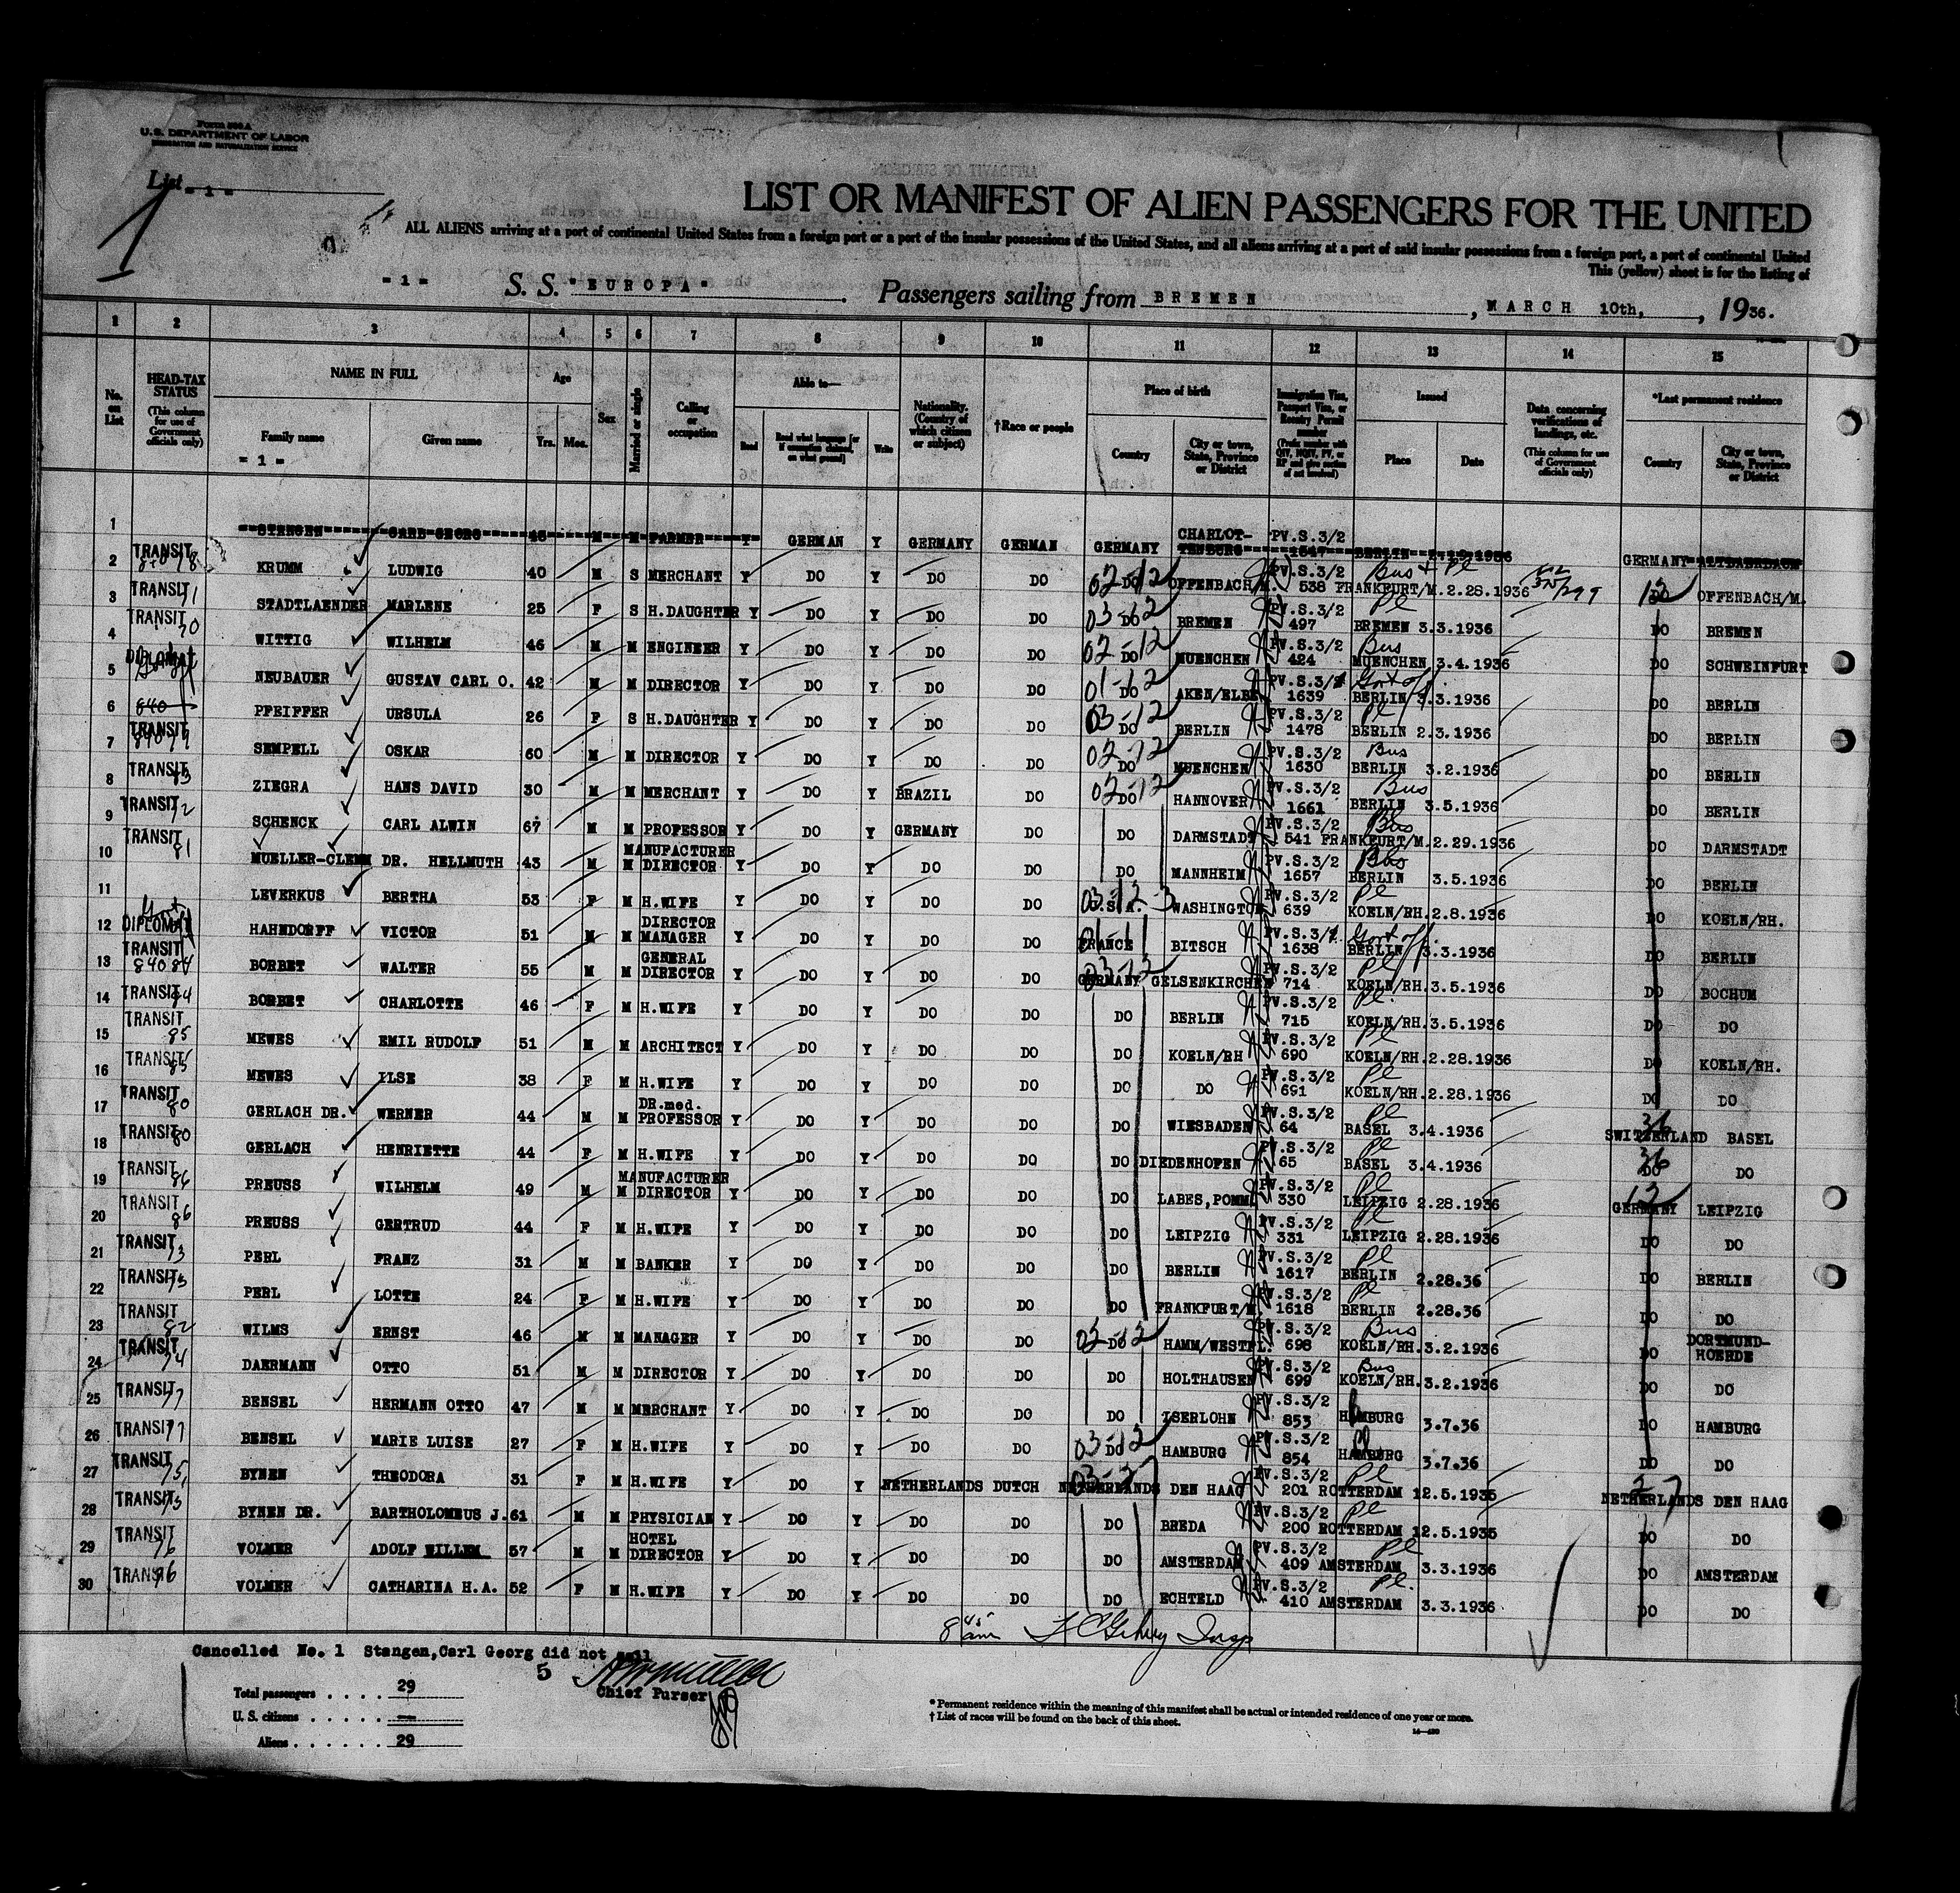 Form 500 A
U.S. DEPARTMENT OF LABOR
IMMIGRATION AND NATURALIZATION SERVICE
List = 1 =
1
LIST OR MANIFEST OF ALIEN PASSENGERS FOR THE UNITED
ALL ALIENS arriving at a port of continental United States from a foreign port or a port of the insular possessions of the United States, and all aliens arriving at a port of said insular possessions from a foreign port, a port of continental United
This (yellow) sheet is for the listing of
= 1 = S. S. "EUROPA". Passengers sailing from BREMEN, MARCH 10th, , 1936.
1 2 3 4 5 6 7 8 9 10 11 12 13 14 15
No. on List
HEAD-TAX STATUS (This column for use of Government officials only)
NAME IN FULL
Family name Given name
= 1 =
Age Yrs. Mos.
Sex
Married or single
Calling or occupation
Able to—
Read Read what language [or if exemption claimed, on what ground] Write
Nationality. (Country of which citizen or subject)
†Race or people
Place of birth
Country City or town, State, Province or District
Immigration Visa, Passport Visa, or Reentry Permit number (Prefix number with QIV, NQIV, PV, or RP and give section of act involved)
Issued
Place Date
Data concerning verifications of landings, etc. (This column for use of Government officials only)
*Last permanent residence
Country City or town, State, Province or District
1 STENGEN CARL GEORG 48 M M FARMER Y GERMAN Y GERMANY GERMAN GERMANY CHARLOT-TENBURG PV.S.3/2 1647 BERLIN 1936 GERMANY
2 TRANSIT KRUMM LUDWIG 40 M S MERCHANT Y DO Y DO DO 02-12 DO OFFENBACH/M. PV.S.3/2 538 Bus + Pl FRANKFURT/M. 2.28.1936 12 DO OFFENBACH/M.
3 TRANSIT 71 STADTLAENDER MARLENE 25 F S H.DAUGHTER Y DO Y DO DO 03-12 DO BREMEN PV.S.3/2 497 Pl BREMEN 3.3.1936 DO BREMEN
4 TRANSIT 70 WITTIG WILHELM 46 M M ENGINEER Y DO Y DO DO 02-12 DO MUENCHEN PV.S.3/2 424 Bus MUENCHEN 3.4.1936 DO SCHWEINFURT
5 DIPLOMAT Govt NEUBAUER GUSTAV CARL O. 42 M M DIRECTOR Y DO Y DO DO 01-12 DO AKEN/ELBE PV.S.3/1 1639 Govt off. BERLIN 3.3.1936 DO BERLIN
6 840 PFEIFFER URSULA 26 F S H.DAUGHTER Y DO Y DO DO 03-12 DO BERLIN PV.S.3/2 1478 Pl BERLIN 2.3.1936 DO BERLIN
7 TRANSIT SEMPELL OSKAR 60 M M DIRECTOR Y DO Y DO DO 02-12 DO MUENCHEN PV.S.3/2 1630 Bus BERLIN 3.2.1936 DO BERLIN
8 TRANSIT 83 ZIEGRA HANS DAVID 30 M M MERCHANT Y DO Y BRAZIL DO 02-12 DO HANNOVER PV.S.3/2 1661 Bus BERLIN 3.5.1936 DO BERLIN
9 TRANSIT 72 SCHENCK CARL ALWIN 67 M M PROFESSOR Y DO Y GERMANY DO DO DARMSTADT PV.S.3/2 541 Bus FRANKFURT/M. 2.29.1936 DO DARMSTADT
10 TRANSIT 81 MUELLER-CLEMM DR. HELLMUTH 43 M M MANUFACTURER DIRECTOR Y DO Y DO DO DO MANNHEIM PV.S.3/2 1657 Bus BERLIN 3.5.1936 DO BERLIN
11 LEVERKUS BERTHA 53 F M H.WIFE Y DO Y DO DO 03-12-3 U.S.A. WASHINGTON PV.S.3/2 639 Pl KOELN/RH. 2.8.1936 DO KOELN/RH.
12 Govt DIPLOMAT HAHNDORFF VICTOR 51 M M DIRECTOR MANAGER Y DO Y DO DO FRANCE BITSCH PV.S.3/1 1638 Govt off. BERLIN 3.3.1936 DO BERLIN
13 TRANSIT 840 84 BORBET WALTER 55 M M GENERAL DIRECTOR Y DO Y DO DO 03-12 GERMANY GELSENKIRCHEN PV.S.3/2 714 Pl KOELN/RH. 3.5.1936 DO BOCHUM
14 TRANSIT 84 BORBET CHARLOTTE 46 F M H.WIFE Y DO Y DO DO DO BERLIN PV.S.3/2 715 Pl. KOELN/RH. 3.5.1936 DO DO
15 TRANSIT 85 MEWES EMIL RUDOLF 51 M M ARCHITECT Y DO Y DO DO DO KOELN/RH PV.S.3/2 690 Pl KOELN/RH. 2.28.1936 DO KOELN/RH.
16 TRANSIT 85 MEWES ILSE 38 F M H.WIFE Y DO Y DO DO DO DO PV.S.3/2 691 Pl KOELN/RH. 2.28.1936 DO DO
17 TRANSIT 80 GERLACH DR. WERNER 44 M M DR.med. PROFESSOR Y DO Y DO DO DO WIESBADEN PV.S.3/2 64 Pl BASEL 3.4.1936 36 SWITZERLAND BASEL
18 TRANSIT 80 GERLACH HENRIETTE 44 F M H.WIFE Y DO Y DO DO DO DIEDENHOFEN PV.S.3/2 65 Pl BASEL 3.4.1936 36 DO DO
19 TRANSIT 86 PREUSS WILHELM 49 M M MANUFACTURER DIRECTOR Y DO Y DO DO DO LABES,POMM. PV.S.3/2 330 Pl LEIPZIG 2.28.1936 12 GERMANY LEIPZIG
20 TRANSIT 86 PREUSS GERTRUD 44 F M H.WIFE Y DO Y DO DO DO LEIPZIG PV.S.3/2 331 Pl LEIPZIG 2.28.1936 DO DO
21 TRANSIT 73 PERL FRANZ 31 M M BANKER Y DO Y DO DO DO BERLIN PV.S.3/2 1617 Pl BERLIN 2.28.36 DO BERLIN
22 TRANSIT 73 PERL LOTTE 24 F M H.WIFE Y DO Y DO DO DO FRANKFURT/M. PV.S.3/2 1618 Pl BERLIN 2.28.36 DO DO
23 TRANSIT 82 WILMS ERNST 46 M M MANAGER Y DO Y DO DO 02-12 DO HAMM/WESTFL. PV.S.3/2 698 Bus KOELN/RH. 3.2.1936 DO DORTMUND-HOERDE
24 TRANSIT 74 DAERMANN OTTO 51 M M DIRECTOR Y DO Y DO DO DO HOLTHAUSEN PV.S.3/2 699 Bus KOELN/RH. 3.2.1936 DO DO
25 TRANSIT 77 BENSEL HERMANN OTTO 47 M M MERCHANT Y DO Y DO DO DO ISERLOHN PV.S.3/2 853 HAMBURG 3.7.36 DO HAMBURG
26 TRANSIT 77 BENSEL MARIE LUISE 27 F M H.WIFE Y DO Y DO DO 03-12 DO HAMBURG PV.S.3/2 854 Pl HAMBURG 3.7.36 DO DO
27 TRANSIT 75 BYNEN THEODORA 31 F M H.WIFE Y DO Y NETHERLANDS DUTCH NETHERLANDS DEN HAAG PV.S.3/2 201 Pl ROTTERDAM 12.5.1935 27 NETHERLANDS DEN HAAG
28 TRANSIT 75 BYNEN DR. BARTHOLOMEUS J. 61 M M PHYSICIAN Y DO Y DO DO DO BREDA PV.S.3/2 200 Pl ROTTERDAM 12.5.1935 DO DO
29 TRANSIT 76 VOLMER ADOLF WILLEM 57 M M HOTEL DIRECTOR Y DO Y DO DO DO AMSTERDAM PV.S.3/2 409 Pl AMSTERDAM 3.3.1936 DO AMSTERDAM
30 TRANSIT 76 VOLMER CATHARINA H.A. 52 F M H.WIFE Y DO Y DO DO DO ECHTELD PV.S.3/2 410 Pl. AMSTERDAM 3.3.1936 DO DO
8 45 am Insp
Cancelled No. 1 Stangen,Carl Georg did not sail
5
Chief Purser
Total passengers . . . . 29
U. S. citizens . . . . . —
Aliens . . . . . . 29
* Permanent residence within the meaning of this manifest shall be actual or intended residence of one year or more.
† List of races will be found on the back of this sheet.